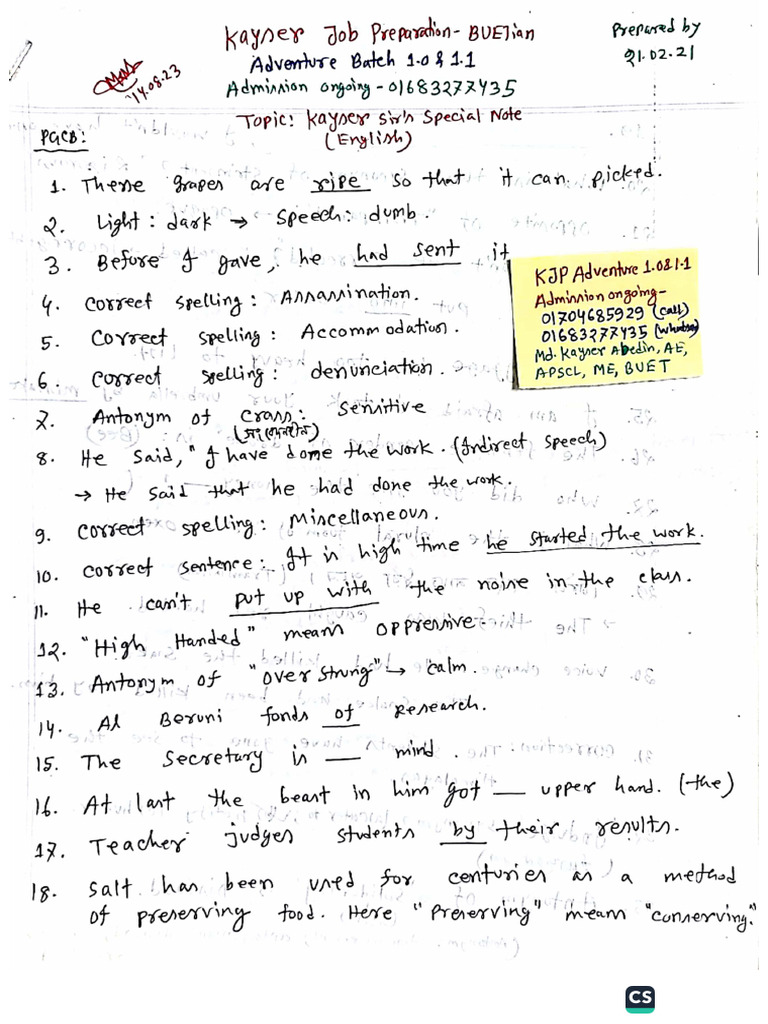 Kayser Job Preparation- BUETian
Adventure Batch 1.0 & 1.1
Admission ongoing - 01683277435
Prepared by
21.02.21
14.08.23
Topic: Kayser Sir's Special Note
(English)
PGCB:
1. These grapes are ripe so that it can picked.
2. Light : dark → speech : dumb.
3. Before I gave, he had sent it
4. Correct spelling : Assassination.
5. Correct spelling : Accommodation.
6. Correct spelling : denunciation.
KJP Adventure 1.0&1.1
Admission ongoing-
01704685929 (call)
01683277435 (whatsap)
Md. Kayser Abedin, AE,
APSCL, ME, BUET
7. Antonym of Crass : Sensitive
8. He said, "I have done the work. (Indirect speech)
→ He said that he had done the work.
9. Correct spelling : Miscellaneous.
10. Correct sentence : It is high time he started the work.
11. He can't put up with the noise in the class.
12. "High Handed" means oppressive
13. Antonym of "over strung" → calm.
14. Al Beruni fonds of research.
15. The Secretary is __ mind.
16. At last the beast in him got __ upper hand. (the)
17. Teacher judges students by their results.
18. Salt has been used for centuries as a method
of preserving food. Here "Preserving" means "conserving."
CS